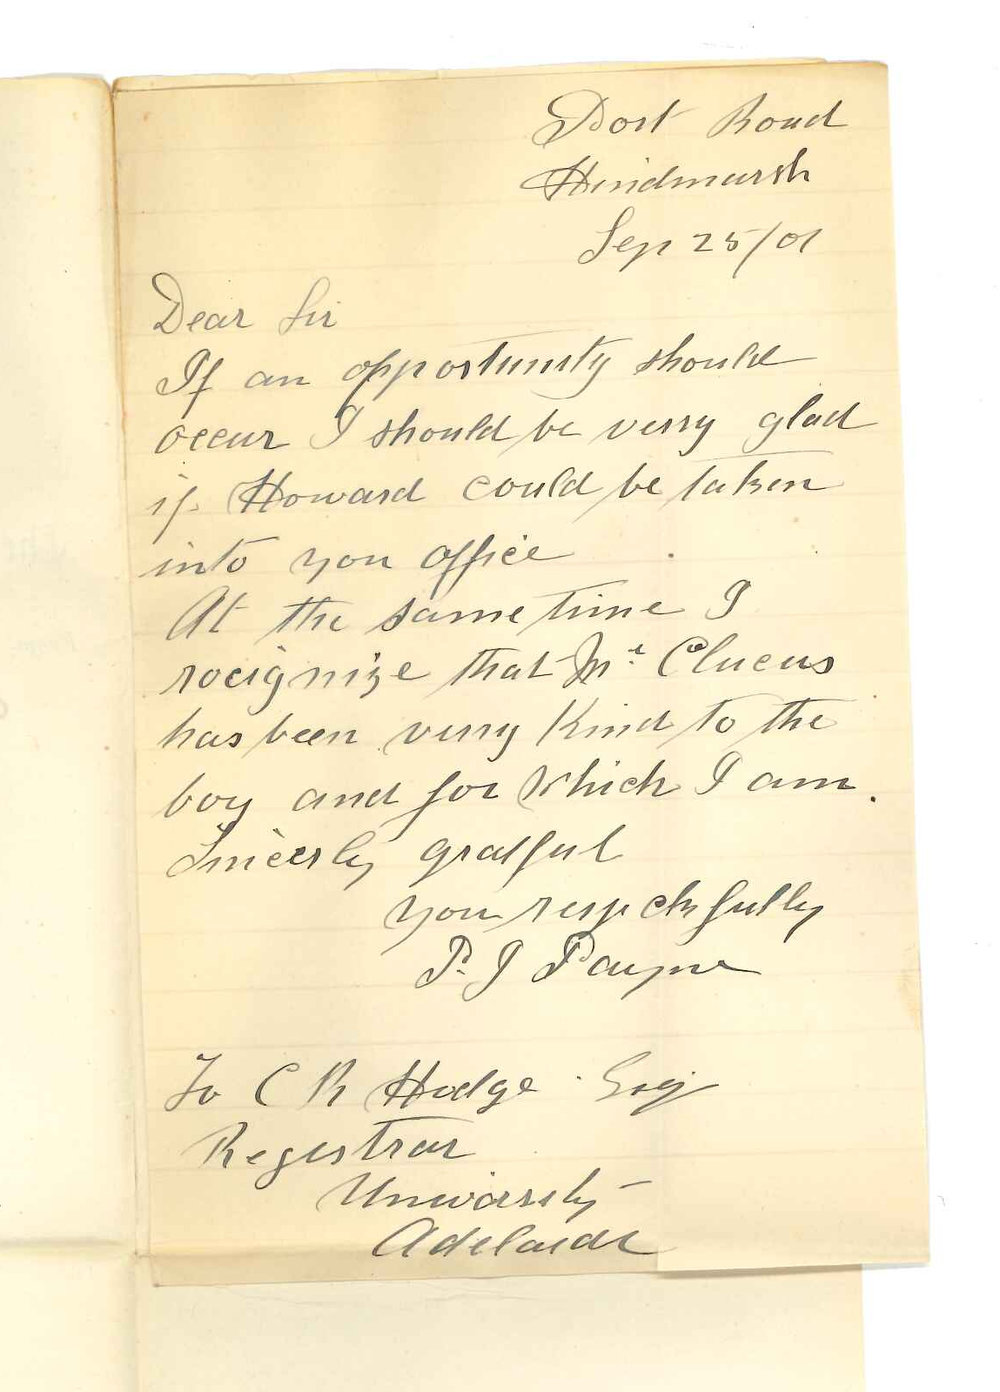 Port Road
Hindmarsh
Sep 25/01
Dear Sir
If an opportunity should
occur I should be verry glad
if Howard could be taken
into your office
At the same time I
rocignize that Mr. Clucas
has been verry kind to the
boy and for which I am.
Sincerly gratful
your respectfully
P. J Payne
To C R Hodge Esq
Registrar
University
Adelaide